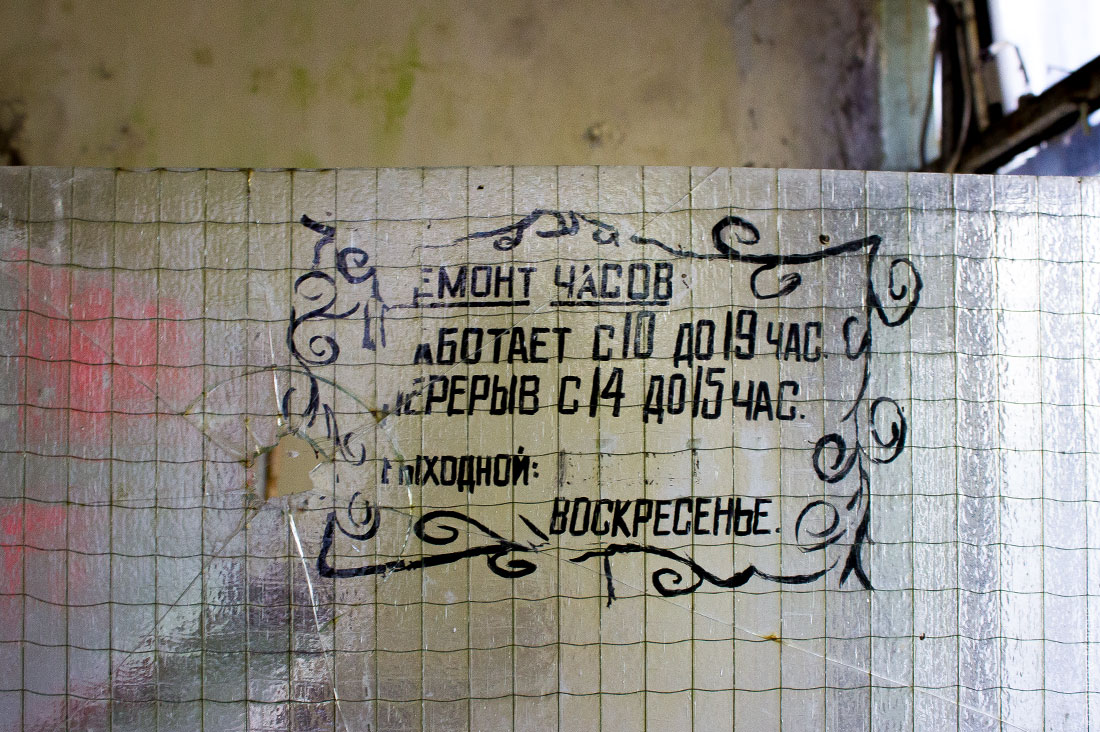 РЕМОНТ ЧАСОВ:
РАБОТАЕТ С 10 ДО 19 ЧАС.
ПЕРЕРЫВ С 14 ДО 15 ЧАС.
ВЫХОДНОЙ:
ВОСКРЕСЕНЬЕ.